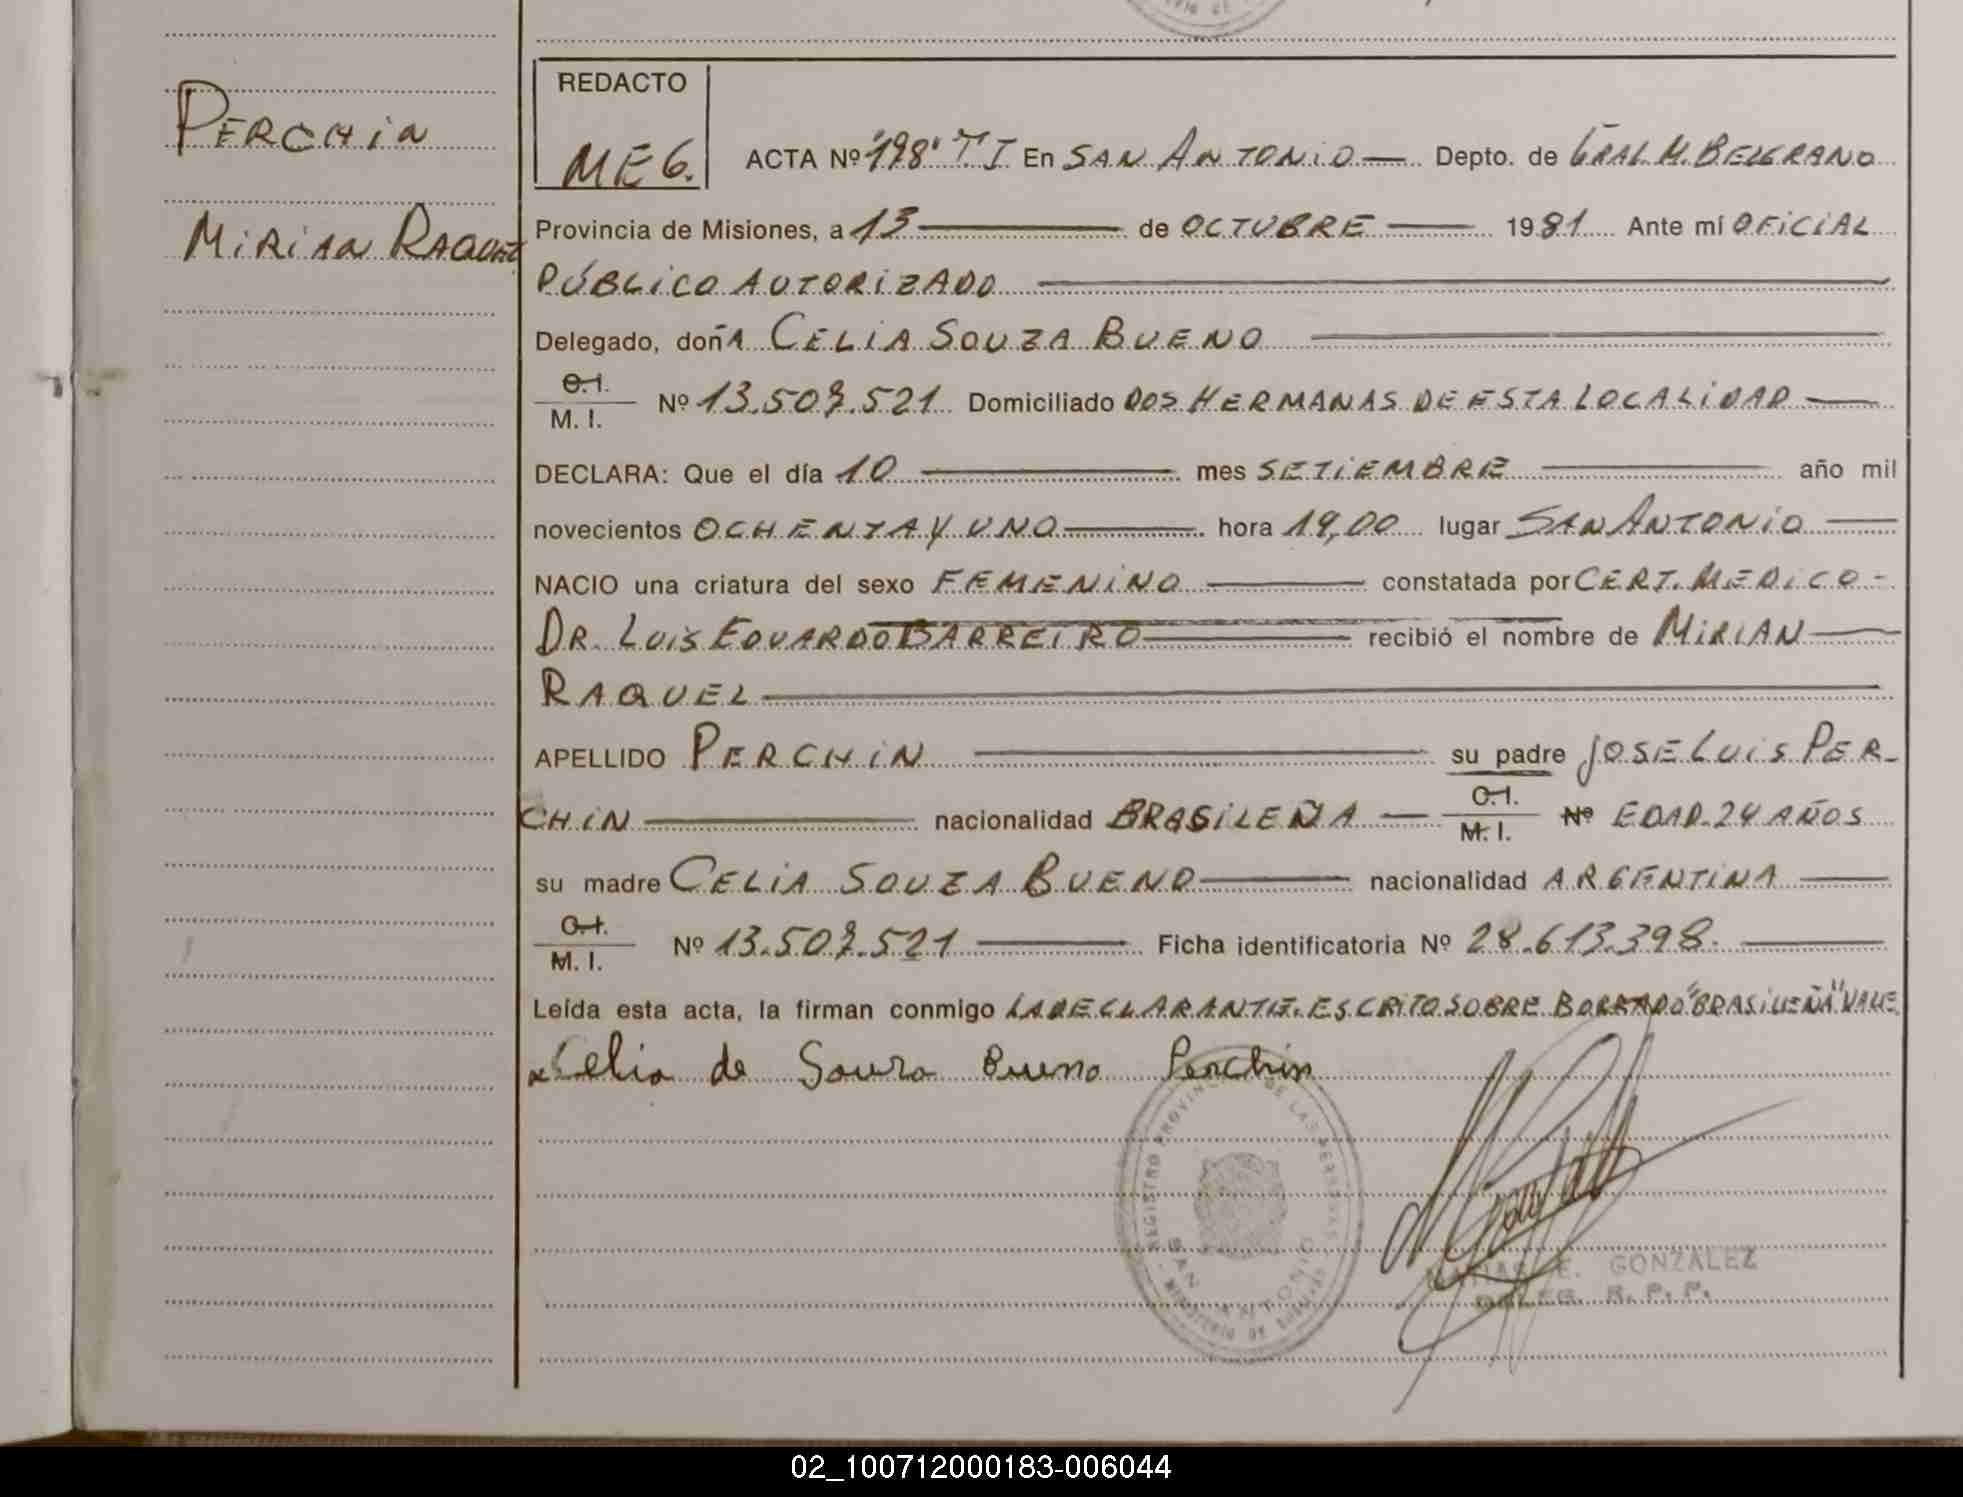 PERCHIN
MIRIAN RAQUEL
REDACTO
MEG.
ACTA Nº "198" T I En SAN ANTONIO Depto. de GRAL M. BELGRANO
Provincia de Misiones, a 13 de OCTUBRE 1981 Ante mí OFICIAL
PÚBLICO AUTORIZADO
Delegado, doñA CELIA SOUZA BUENO
C.I.
M. I. Nº 13.507.521 Domiciliado DOS HERMANAS DE ESTA LOCALIDAD
DECLARA: Que el día 10 mes SETIEMBRE año mil
novecientos OCHENTA Y UNO hora 19,00 lugar SAN ANTONIO
NACIO una criatura del sexo FEMENINO constatada por CERT. MEDICO -
DR. LUIS EDUARDO BARREIRO recibió el nombre de MIRIAN
RAQUEL
APELLIDO PERCHIN su padre JOSE LUIS PER-
CHIN nacionalidad BRASILEÑA C.I. M. I. Nº EDAD 24 AÑOS
su madre CELIA SOUZA BUENO nacionalidad ARGENTINA
C.I.
M. I. Nº 13.507.521 Ficha identificatoria Nº 28.613.398.
Leída esta acta, la firman conmigo LA DECLARANTE. ESCRITO SOBRE BORRADO "BRASILEÑA" VALE
Celia de Souza Bueno Perchin
REGISTRO PROVINCIAL DE LAS PERSONAS
SAN ANTONIO
MINISTERIO DE
E. GONZALEZ
DELEG. R. P. P.
02_100712000183-006044